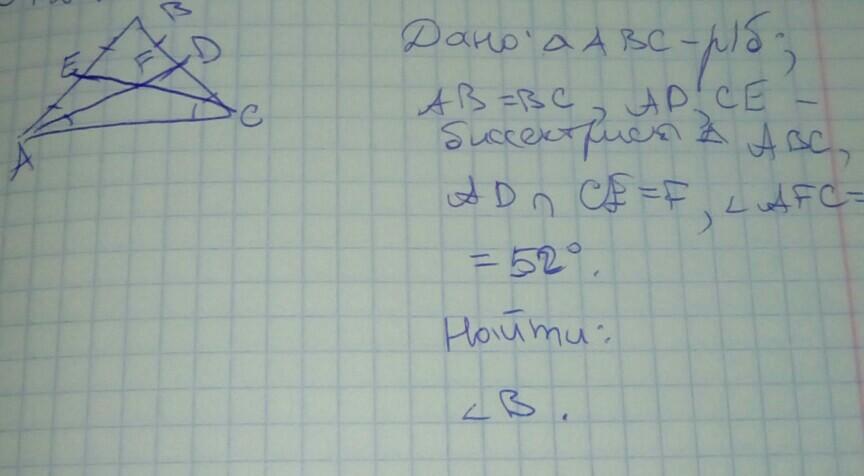 B
E F D
C
A
Дано: △ ABC - р/б;
AB = BC, AD, CE -
биссектрисы △ ABC,
AD ∩ CE = F, ∠ AFC =
= 52°.
Найти:
∠ B.